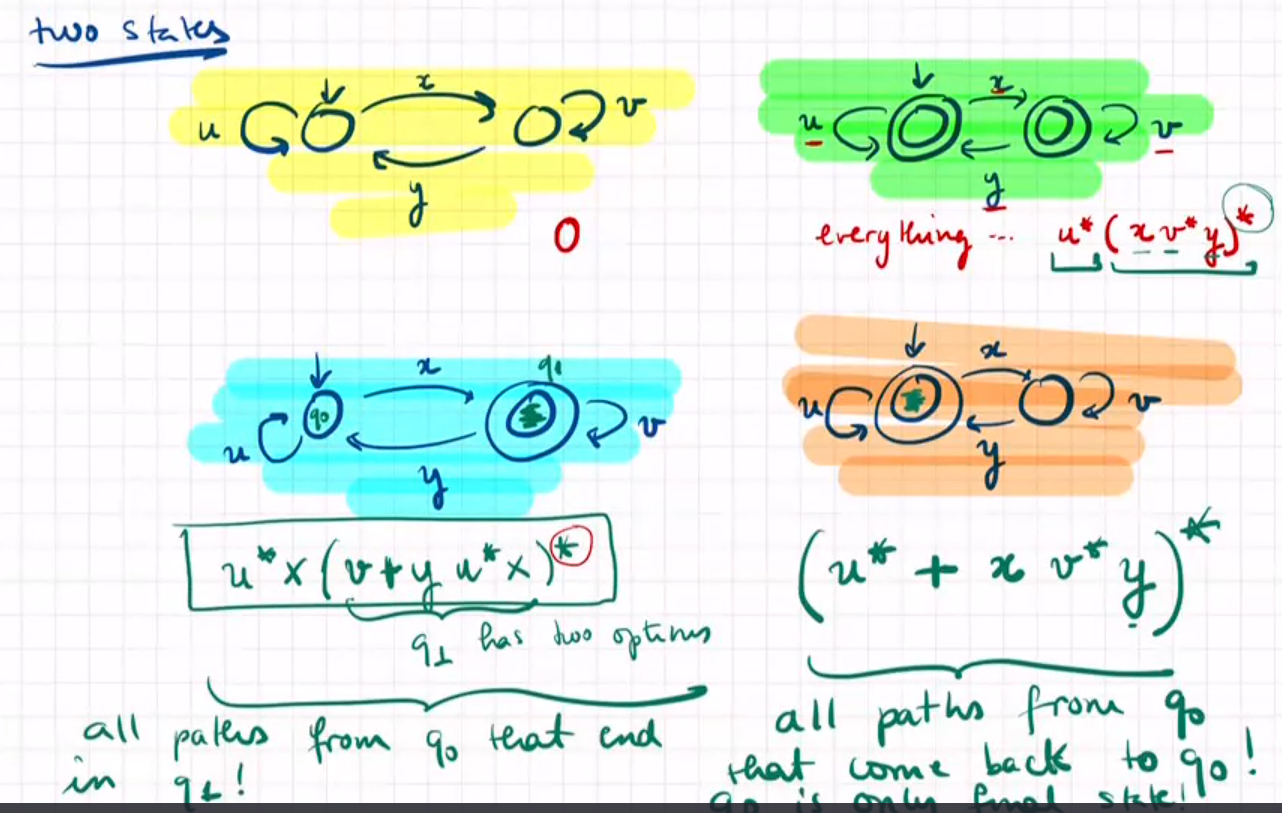 two states
x
u
v
y
0
x
u
v
y
everything ... u* (x v* y)*
x
q1
q0
u
v
y
u* x (v + y u* x)*
q1 has two options
all paths from q0 that end
in q1!
x
u
v
y
(u* + x v* y)*
all paths from q0
that come back to q0!
q0 is only final state!